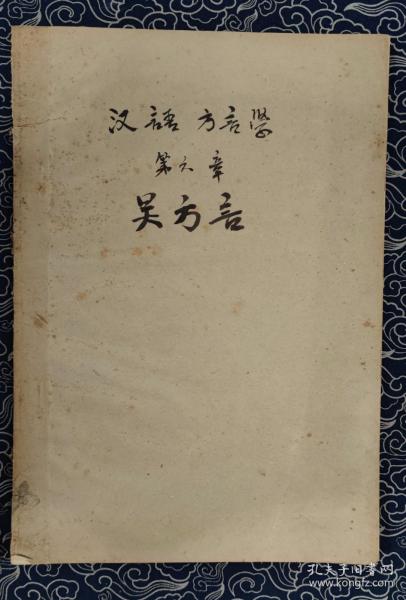 汉語方言学
第六章
吴方言
孔夫子旧书网
book.kongfz.com